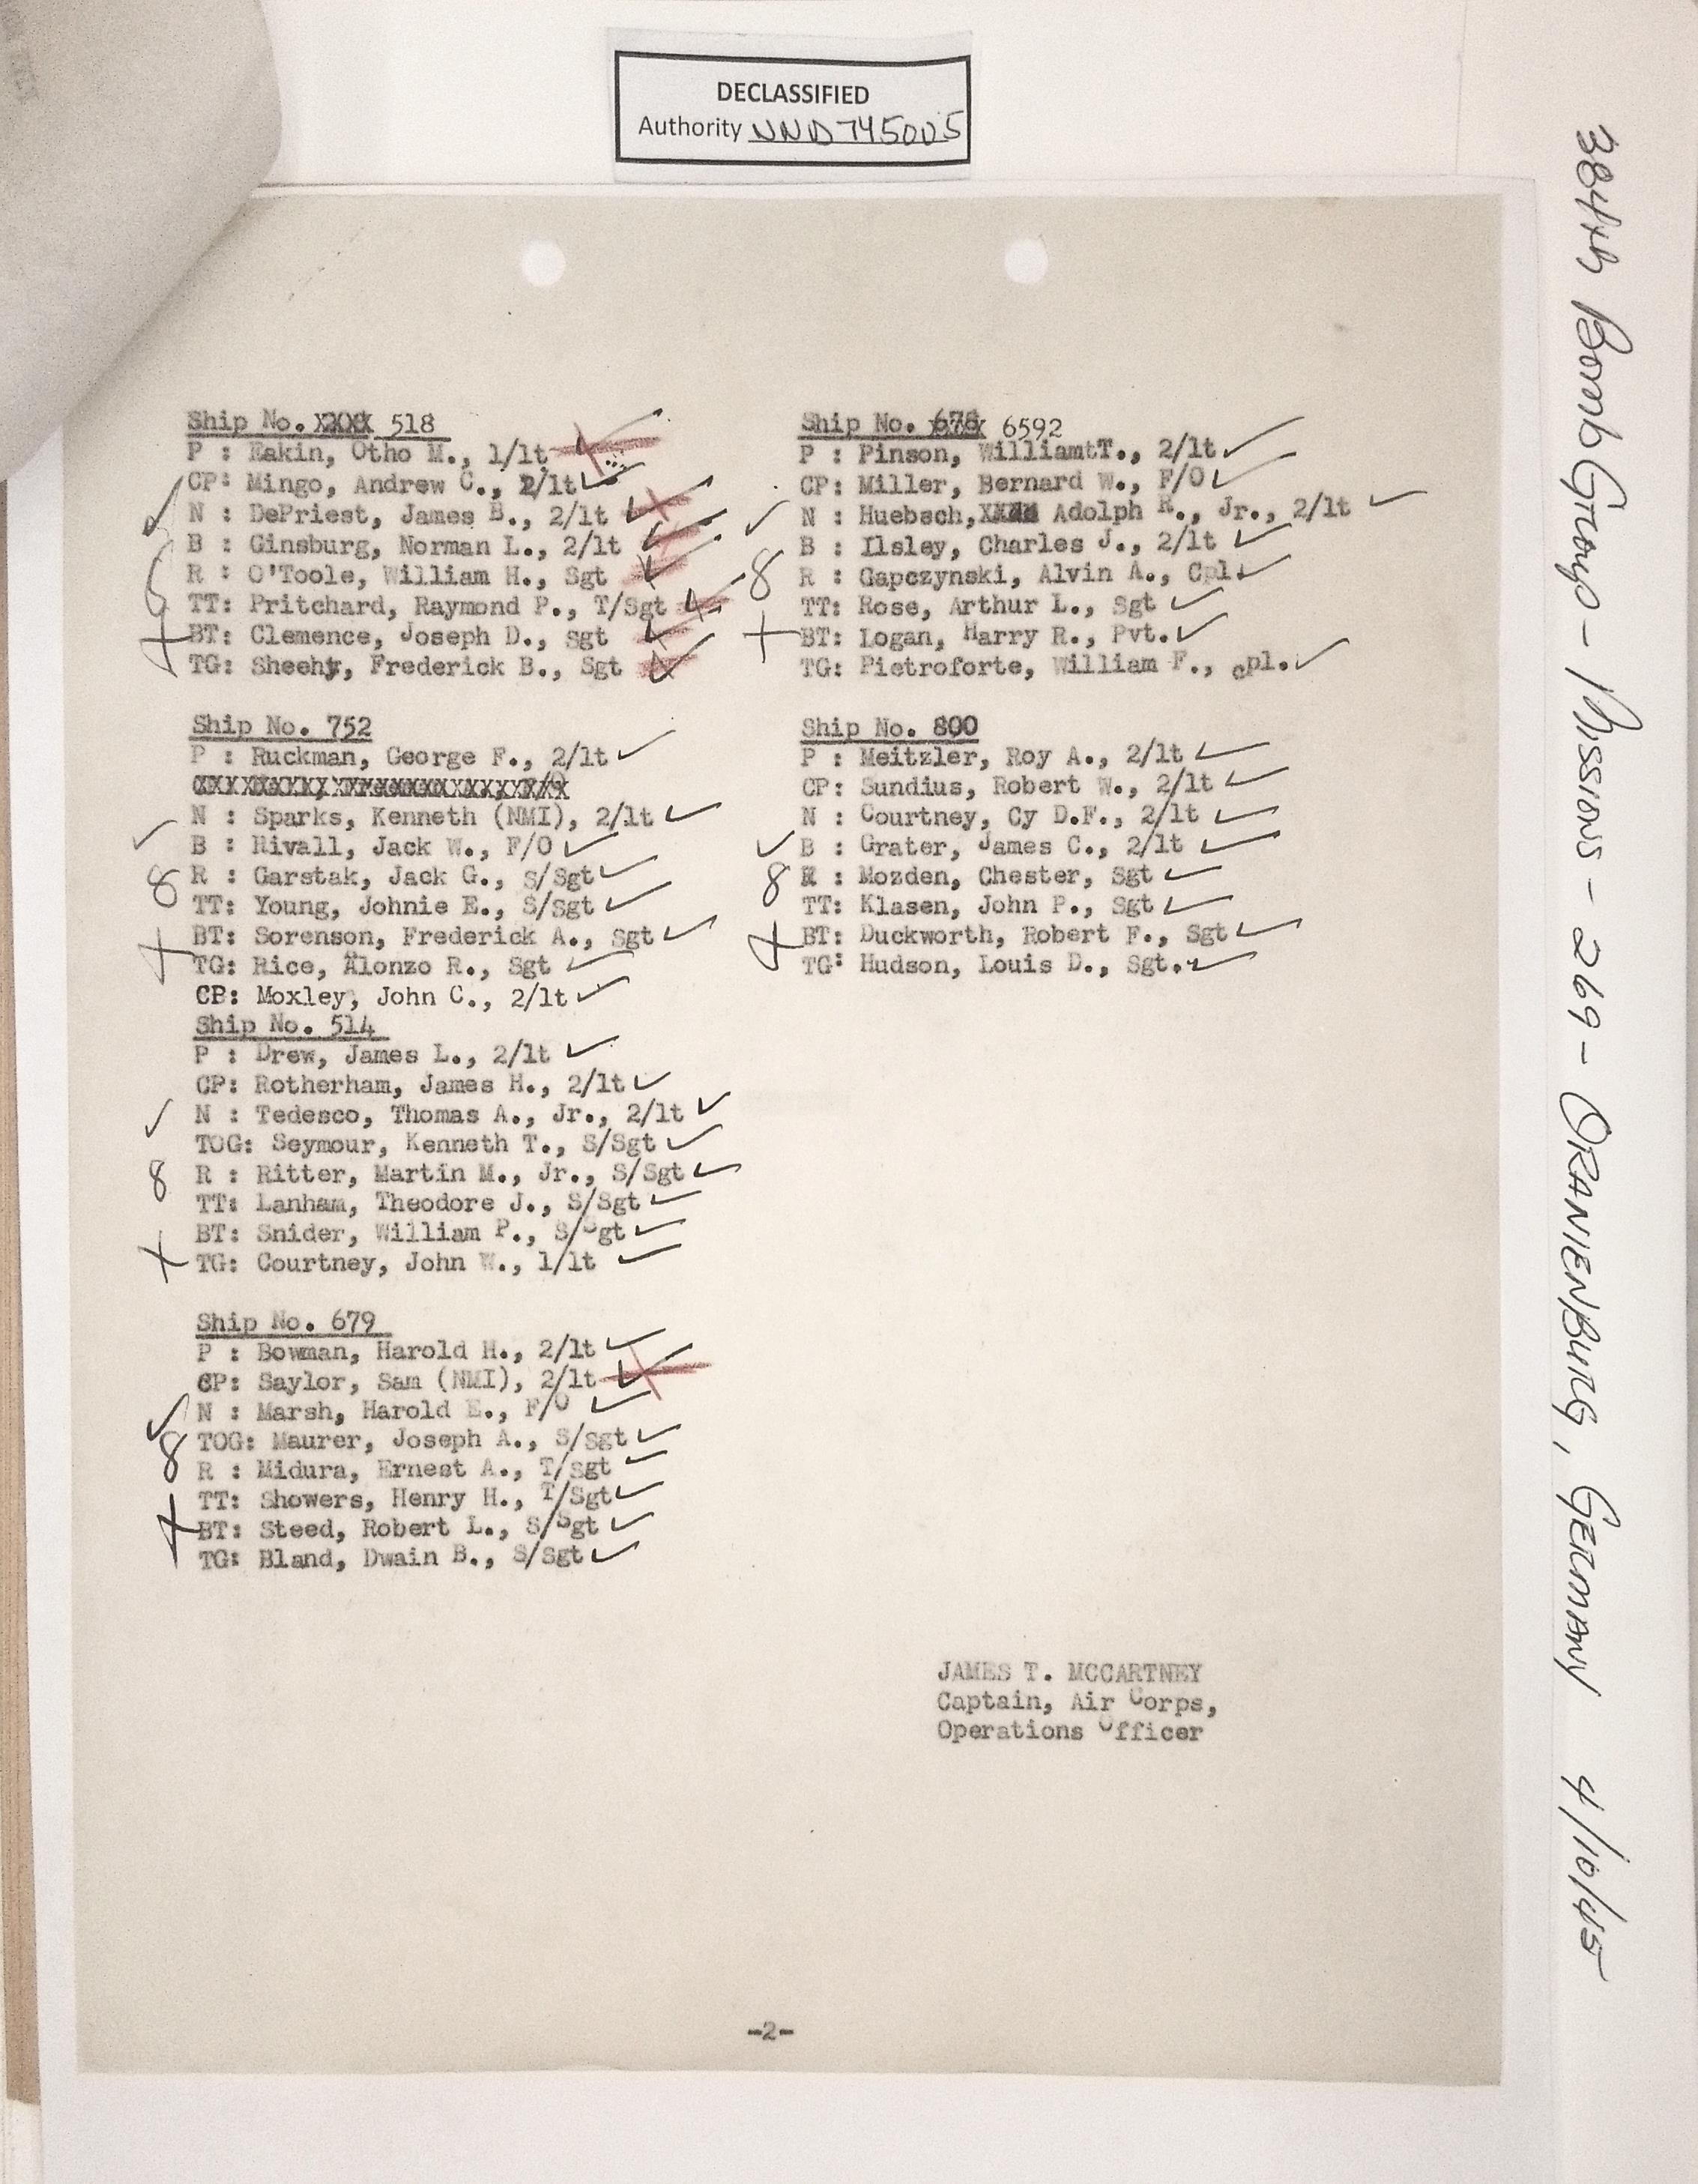 DECLASSIFIED
Authority NND745005
Ship No. XXXX 518
P : Eakin, Otho M., 1/lt
CP: Mingo, Andrew C., 2/lt
N : DePriest, James B., 2/lt
B : Ginsburg, Norman L., 2/lt
R : O'Toole, William H., Sgt
TT: Pritchard, Raymond P., T/Sgt
BT: Clemence, Joseph D., Sgt
TG: Sheehy, Frederick B., Sgt
Ship No. 752
P : Ruckman, George F., 2/lt
N : Sparks, Kenneth (NMI), 2/lt
B : Rivall, Jack W., F/O
8 R : Garstak, Jack G., S/Sgt
TT: Young, Johnie E., S/Sgt
BT: Sorenson, Frederick A., Sgt
TG: Rice, Alonzo R., Sgt
CP: Moxley, John C., 2/lt
Ship No. 514
P : Drew, James L., 2/lt
CP: Rotherham, James H., 2/lt
N : Tedesco, Thomas A., Jr., 2/lt
TOG: Seymour, Kenneth T., S/Sgt
8 R : Ritter, Martin M., Jr., S/Sgt
TT: Lanham, Theodore J., S/Sgt
BT: Snider, William P., S/Sgt
TG: Courtney, John W., 1/lt
Ship No. 679
P : Bowman, Harold H., 2/lt
CP: Saylor, Sam (NMI), 2/lt
N : Marsh, Harold E., F/O
8 TOG: Maurer, Joseph A., S/Sgt
R : Midura, Ernest A., T/Sgt
TT: Showers, Henry H., T/Sgt
BT: Steed, Robert L., S/Sgt
TG: Bland, Dwain B., S/Sgt
Ship No. 678 6592
P : Pinson, WilliamtT., 2/lt
CP: Miller, Bernard W., F/O
N : Huebsch, Adolph R., Jr., 2/lt
B : Ilsley, Charles J., 2/lt
8 R : Gapczynski, Alvin A., Cpl.
TT: Rose, Arthur L., Sgt
BT: Logan, Harry R., Pvt.
TG: Pietroforte, William F., cpl.
Ship No. 800
P : Meitzler, Roy A., 2/lt
CP: Sundius, Robert W., 2/lt
N : Courtney, Cy D.F., 2/lt
B : Grater, James C., 2/lt
8 R : Mozden, Chester, Sgt
TT: Klasen, John P., Sgt
BT: Duckworth, Robert F., Sgt
TG: Hudson, Louis D., Sgt.
JAMES T. MCCARTNEY
Captain, Air Corps,
Operations Officer
-2-
384th Bomb Group - Missions - 269 - ORANIENBURG, GERMANY 4/10/45